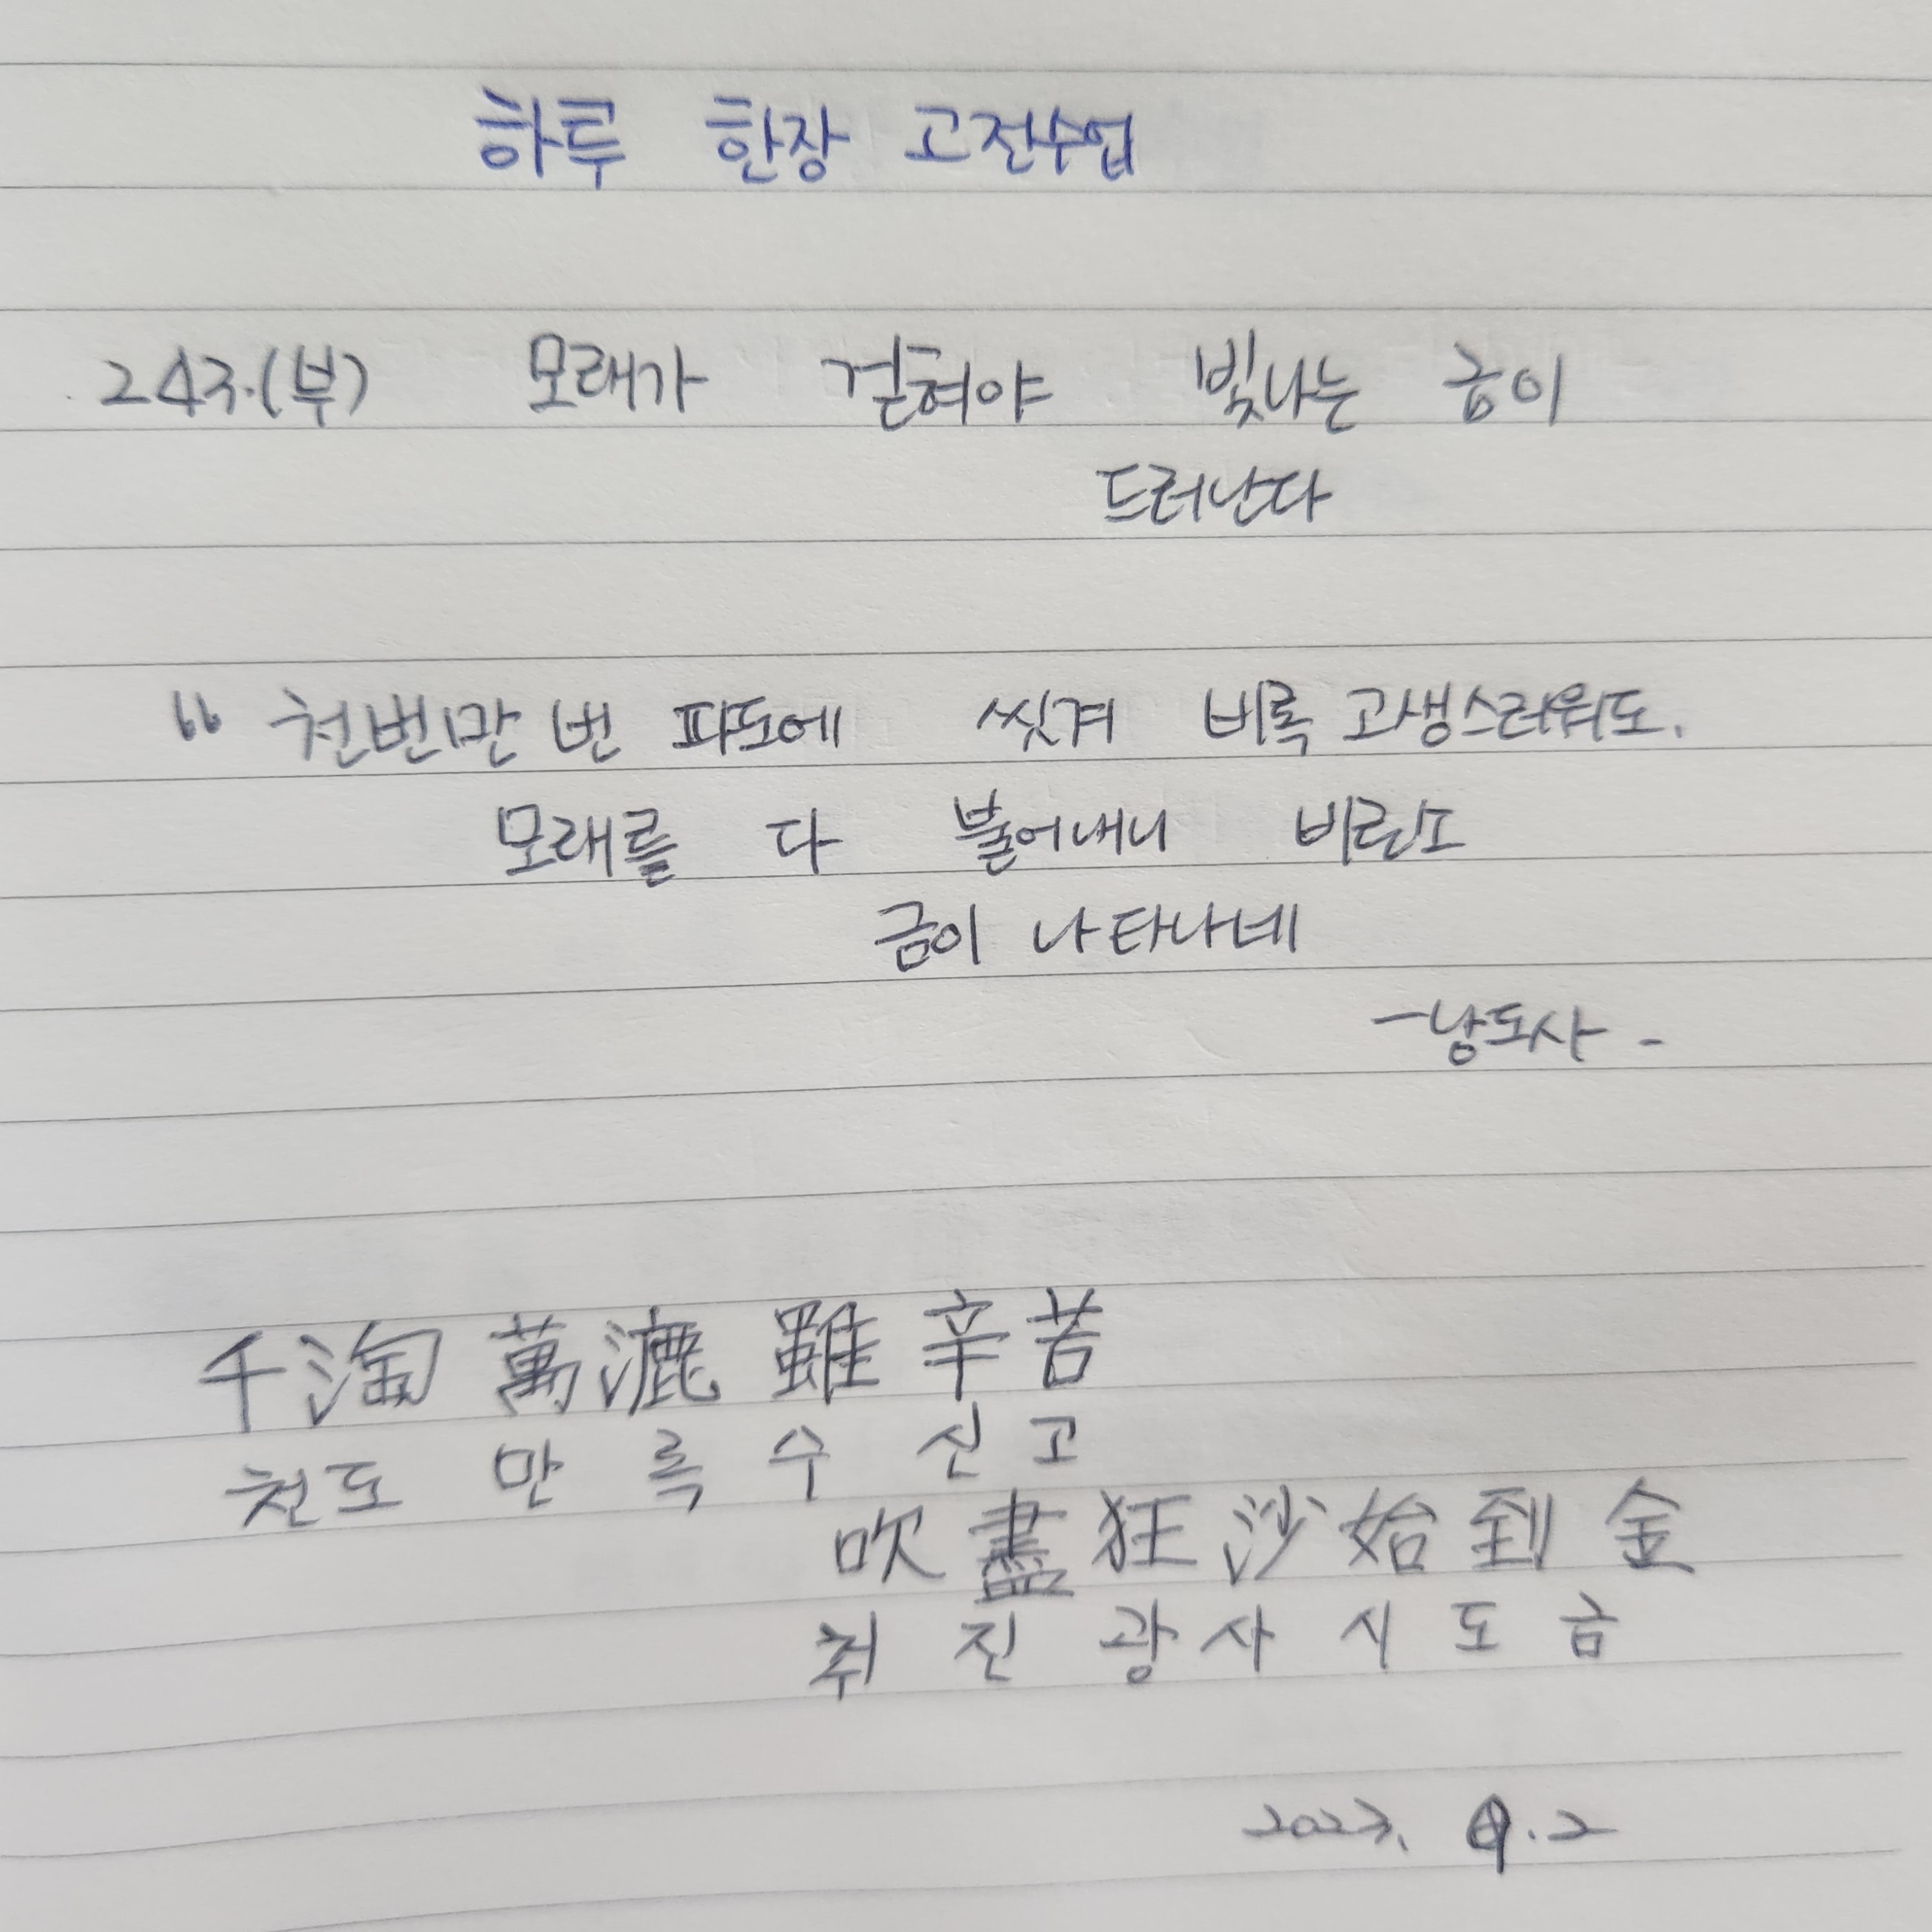 하루 한장 고전수업
243.(부) 모래가 걷혀야 빛나는 금이
드러난다
" 천번만 번 파도에 씻겨 비록 고생스러워도.
모래를 다 불어내니 비린소
금이 나타나네
-낭도사-
千淘萬漉雖辛苦
천도만록수신고
吹盡狂沙始到金
취진광사시도금
2023. 9. 2